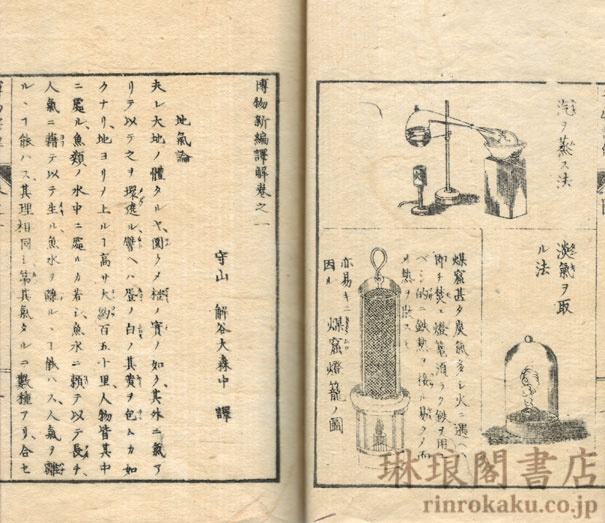 汽ヲ蒸ス法
淡氣ヲ取
ル法
煤窰甚タ炭氣多シ火ニ遇ヘハ
即チ焚ユ燈籠須ラク紗ヲ用ユ
ベシ
亦易キニ
因ル
煤窰燈籠ノ圖
博物新編譯解巻之一
地氣論
守山 解谷大森中 譯
夫レ大地ノ體タルヤ圓クメ橙ノ實ノ如ク其外ニ氣ア
リテ以テ之ヲ環遶ル譬ヘハ蛋ノ白ノ其黄ヲ包ムカ如
クナリ地ヨリノ上ルヿ高サ大約百五十里人物皆其中
ニ處ル魚類ノ水中ニ處ルカ若シ魚水ニ頼テ以テ長チ
人氣ニ藉テ以テ生ル魚水ヲ離ルヽヿ能ハス人氣ヲ離
ルヽヿ能ハス其理相同シ第其氣タルニ數種アリ合セ
琳琅閣書店
rinrokaku.co.jp